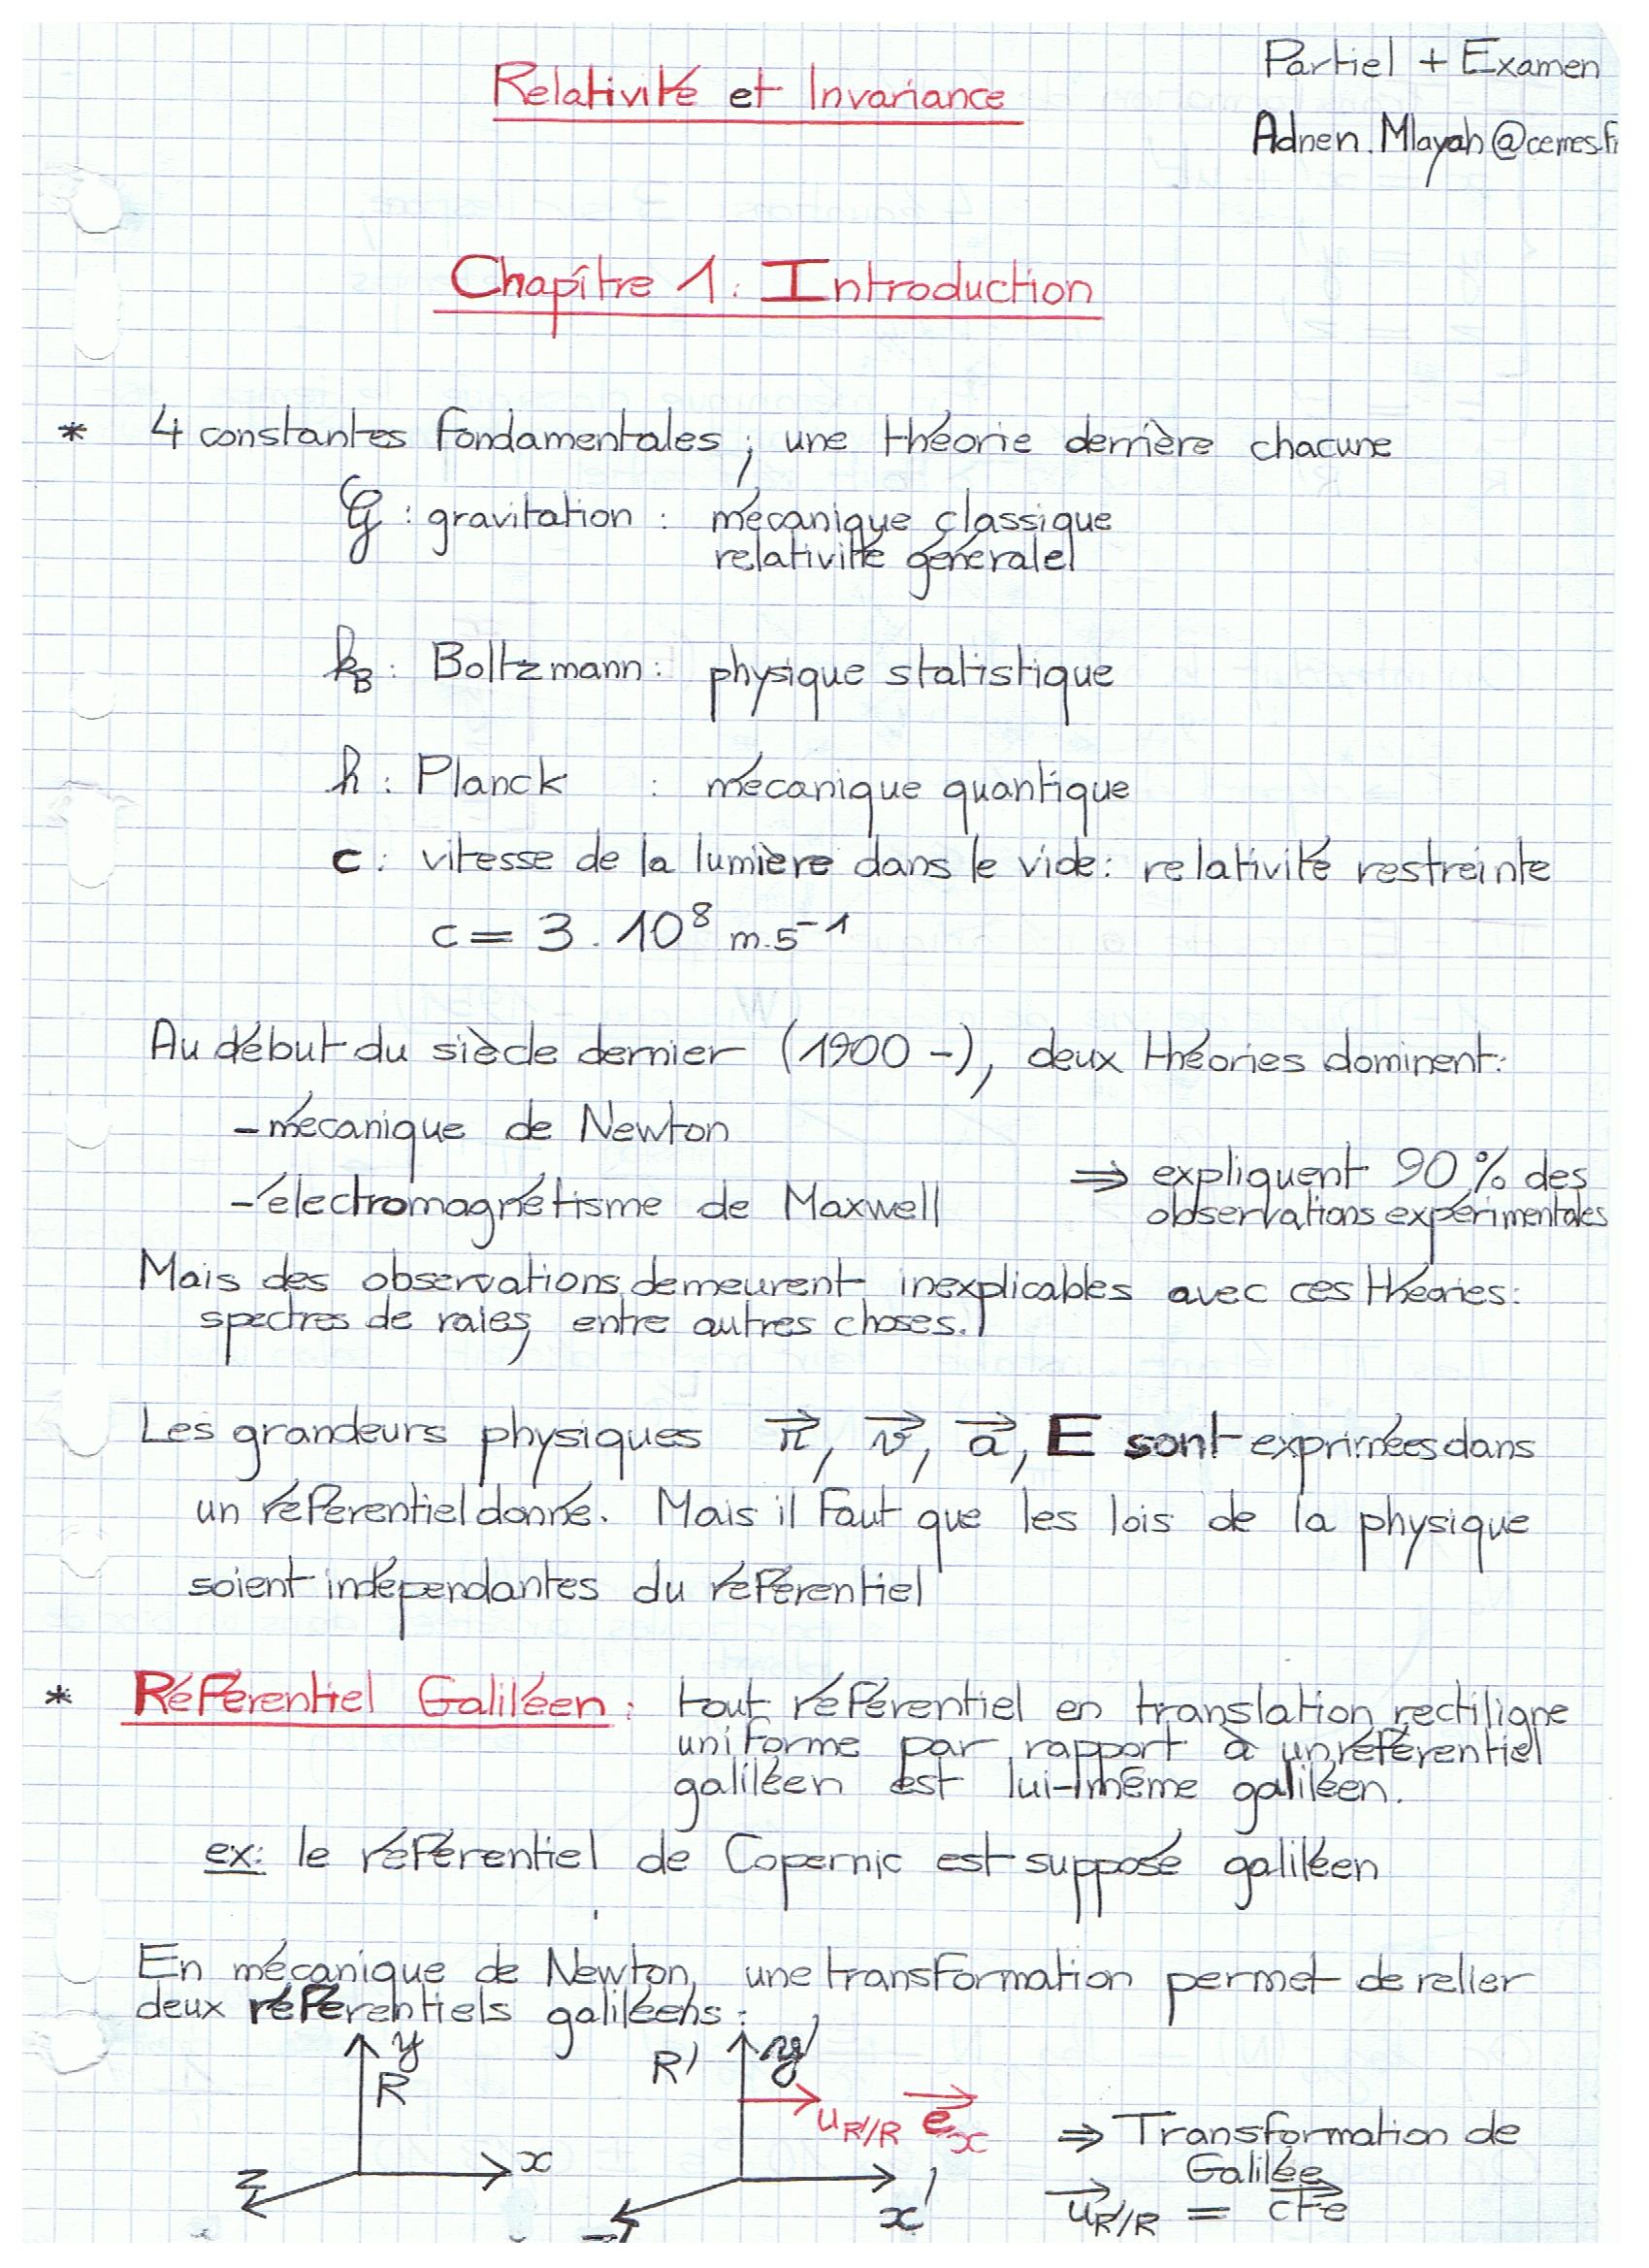 Partiel + Examen
Relativité et Invariance
Adnen.Mlayah@cemes.fr
Chapître 1 : Introduction
* 4 constantes fondamentales ; une théorie derrière chacune
G : gravitation : mécanique classique
relativité générale
kB : Boltzmann : physique statistique
h : Planck : mécanique quantique
c : vitesse de la lumière dans le vide : relativité restreinte
c = 3 . 10⁸ m.s⁻¹
Au début du siècle dernier (1900 -), deux théories dominent :
- mécanique de Newton
- électromagnétisme de Maxwell ⇒ expliquent 90 % des
observations expérimentales
Mais des observations demeurent inexplicables avec ces théories :
spectres de raies, entre autres choses.
Les grandeurs physiques r⃗, v⃗, a⃗, E sont exprimées dans
un référentiel donné. Mais il faut que les lois de la physique
soient indépendantes du référentiel
* Référentiel Galiléen : tout référentiel en translation rectiligne
uniforme par rapport à un référentiel
galiléen est lui-même galiléen.
ex : le référentiel de Copernic est supposé galiléen
En mécanique de Newton, une transformation permet de relier
deux référentiels galiléens :
y
R
x
z
R'
y'
u R'/R e⃗x
x'
⇒ Transformation de
Galilée
u⃗ R'/R = c⃗te